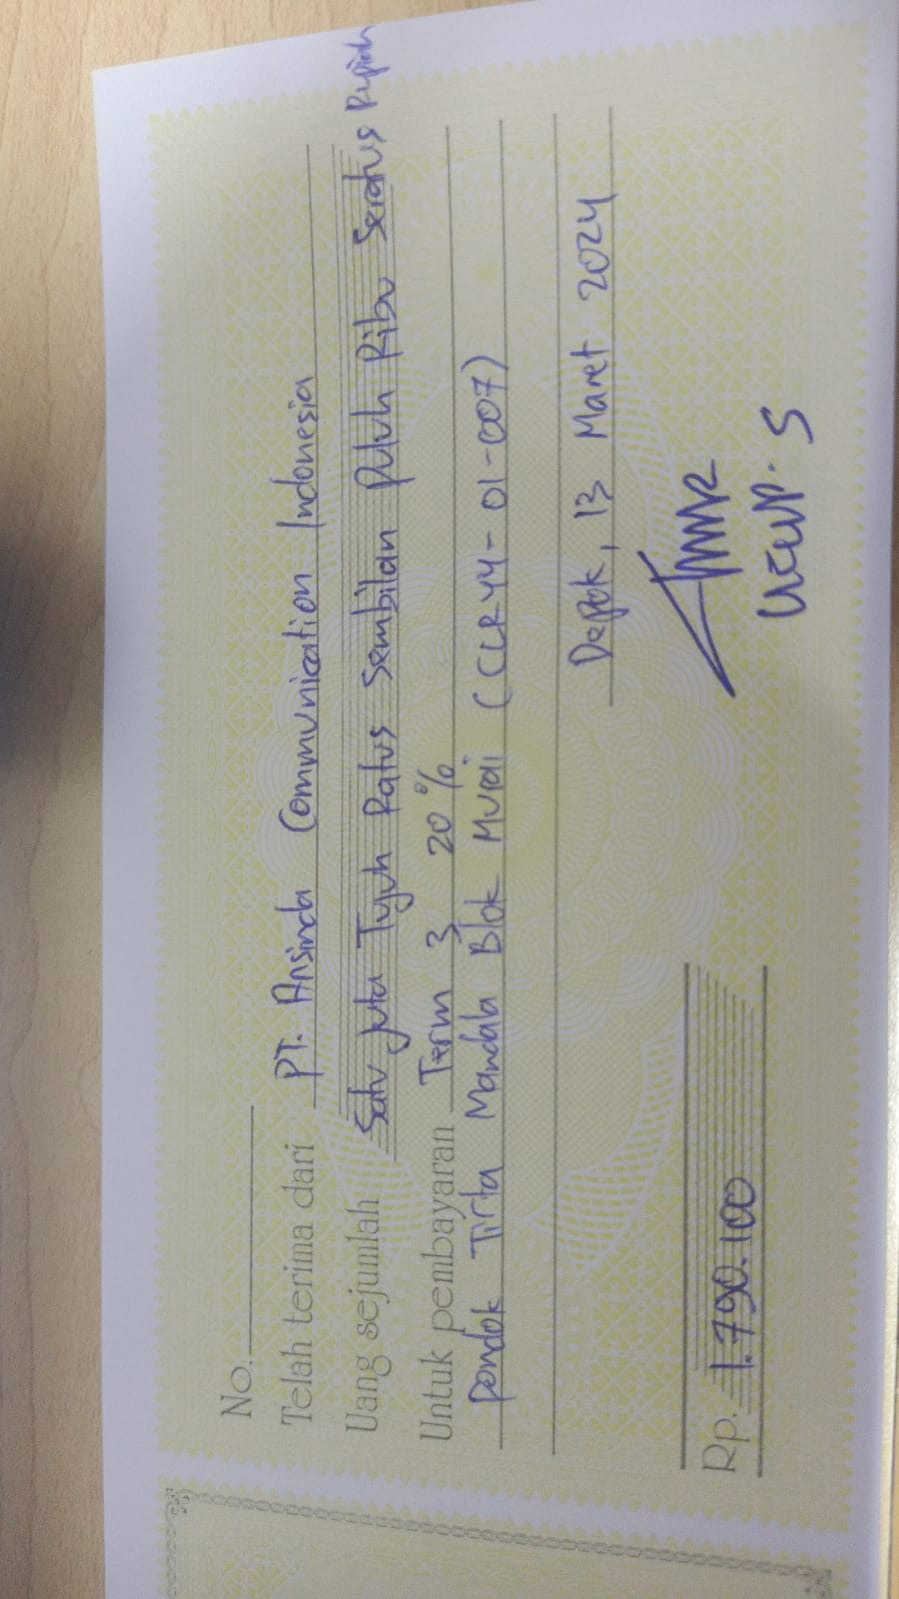 No.
Telah terima dari PT. Arsinda Communication Indonesia
Uang sejumlah Satu juta Tujuh Ratus Sembilan Puluh Ribu Seratus Rupiah
Untuk pembayaran Term 3 20%
Pondok Tirta Mandala Blok Murai (CLR44-01-007)
Depok, 13 Maret 2024
Rp. 1.790.100